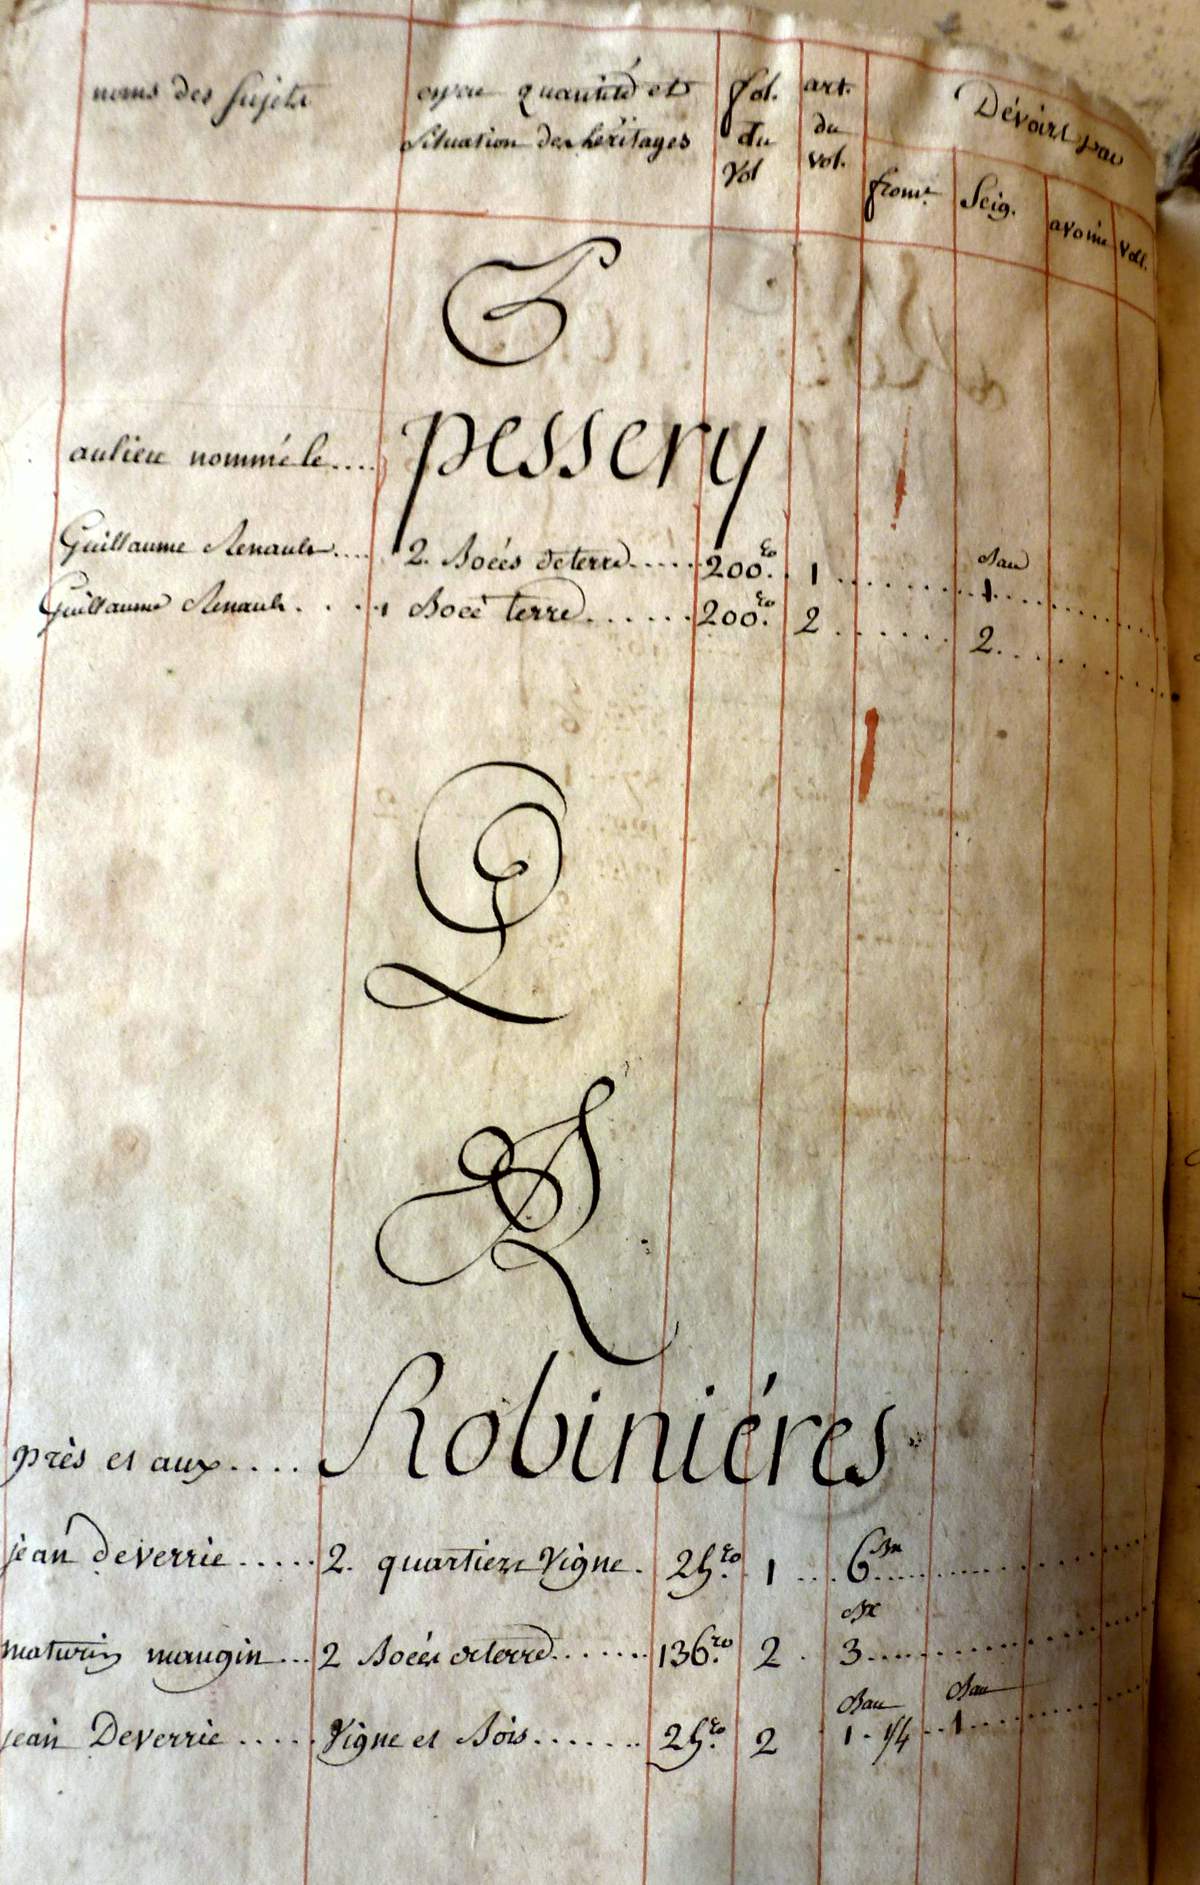 noms des Sujets
espece quantité et
Situation des héritages
fol.
du
vol
art.
du
vol.
Dévoirs par
from.t
Seig.
avoine
voll.
P
au lieu nommé le.... pessery
Guillaume Renault.... 2. Boées de terre..... 200.ro 1 ....... Bau 1
Guillaume Renault.... 1 Boeé terre...... 200.ro 2 ...... 2....
Q
R
près et aux.... Robiniéres
jean deverrie..... 2. quartiers Vigne. 25.ro 1 ... 6
maturin maugin... 2 Boées de terre...... 136.ro 2 . 3....
jean Deverrie..... Vigne et Bois....... 25.ro 2 Bau 1 - 1/4 .. Bau 1....